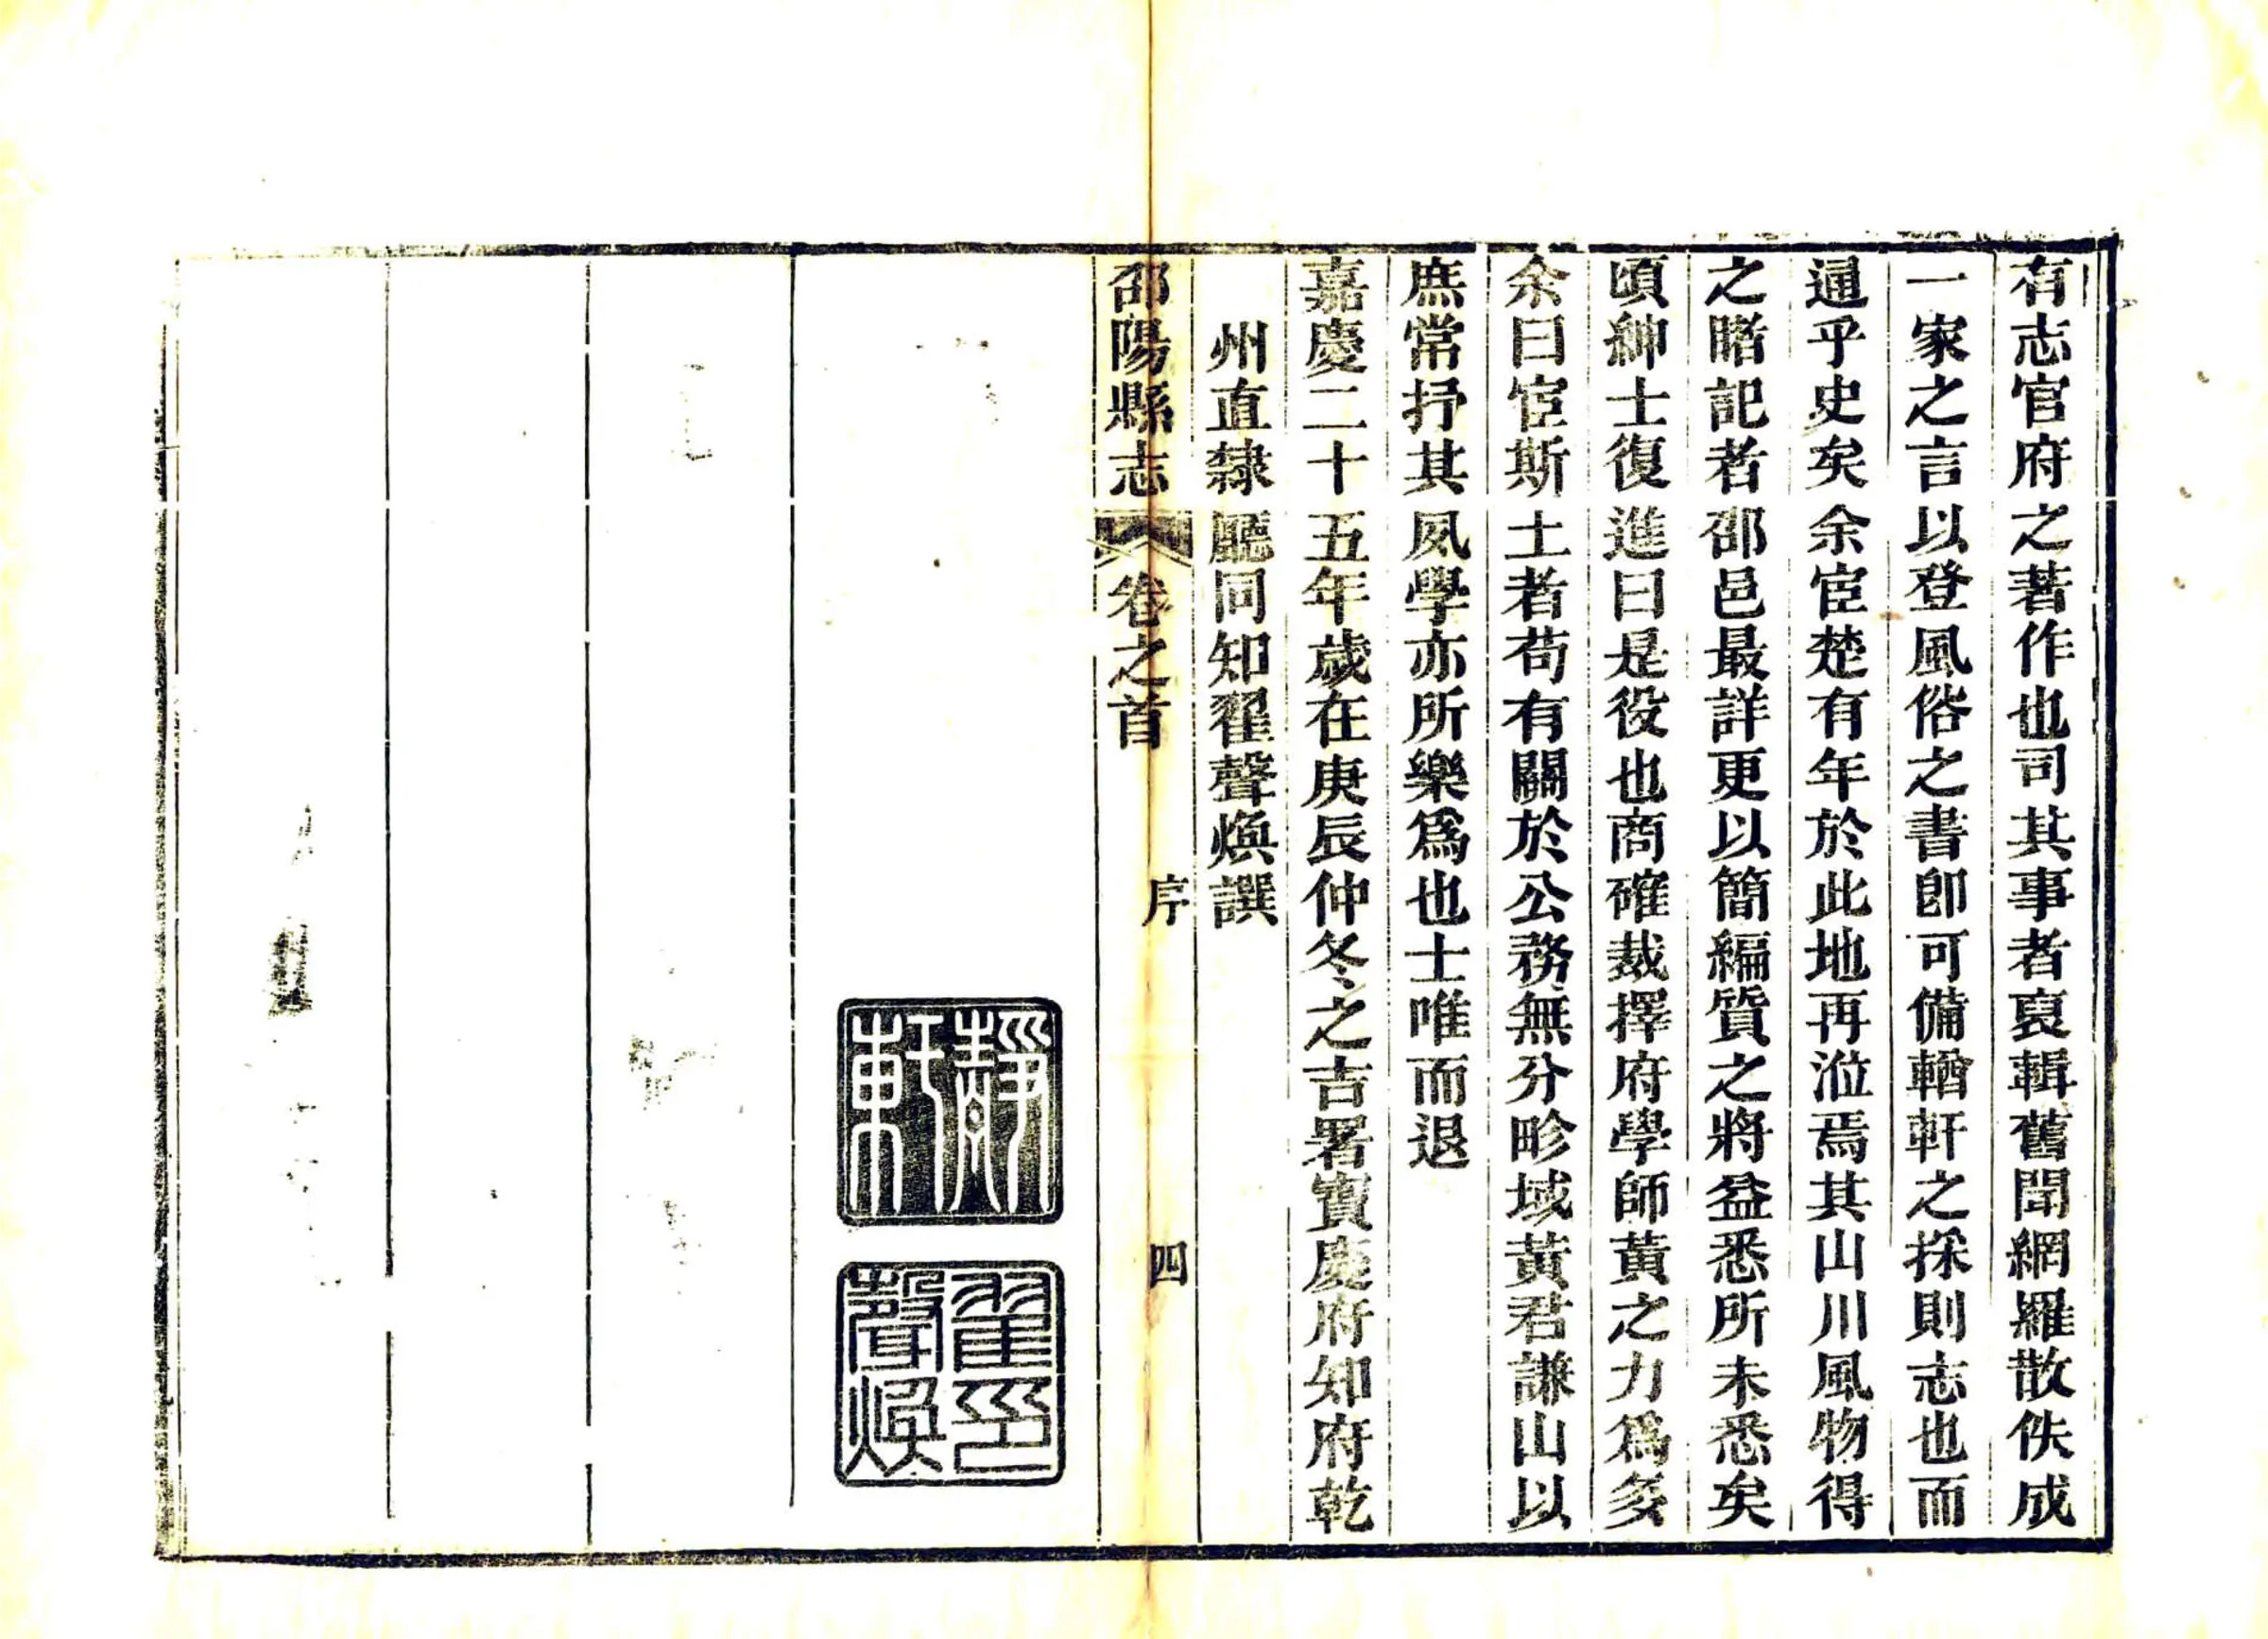 有志官府之著作也司其事者裒輯舊聞網羅散佚成
一家之言以登風俗之書卽可備輶軒之採則志也而
通乎史矣余宦楚有年於此地再涖焉其山川風物得
之睹記者邵邑最詳更以簡編質之將益悉所未悉矣
頃紳士復進曰是役也商確裁擇府學師黃之力爲多
余曰宦斯土者苟有關於公務無分畛域黃君謙山以
庶常抒其夙學亦所樂爲也士唯而退
嘉慶二十五年歲在庚辰仲冬之吉署寶慶府知府乾
州直隸廳同知翟聲煥譔
邵陽縣志
卷之首
序
四
靜軒
翟聲煥印